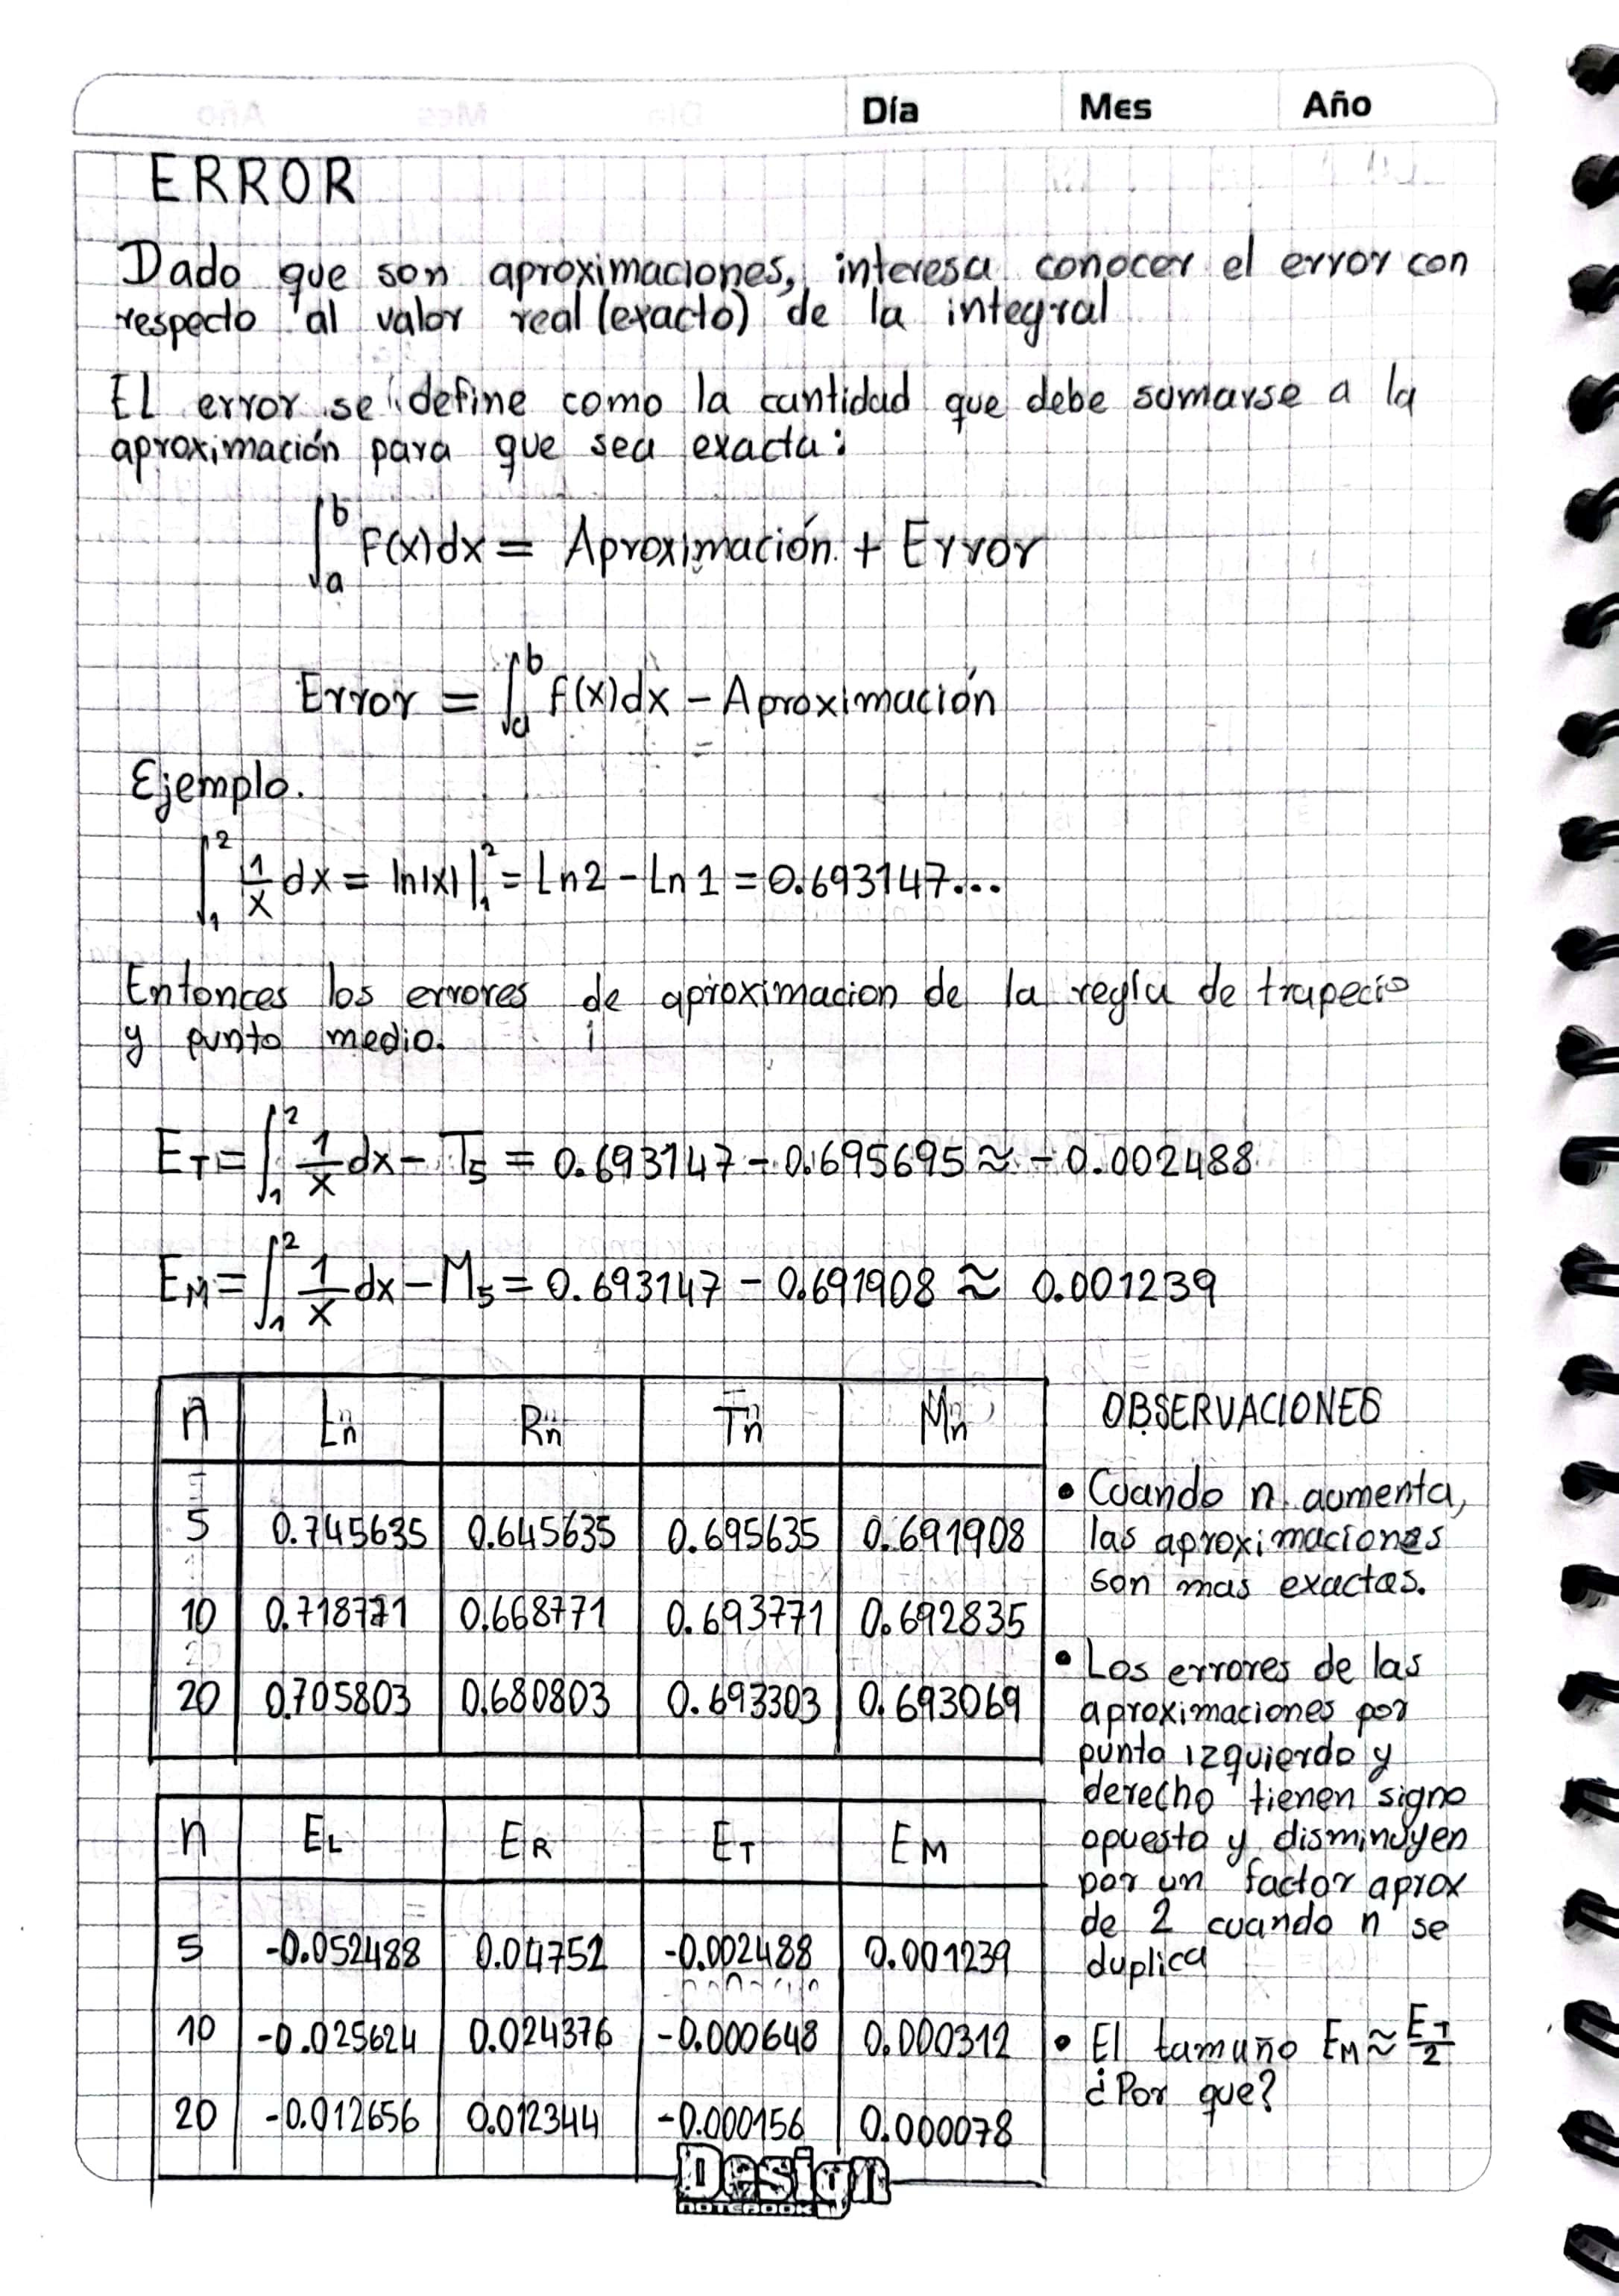 Día Mes Año
ERROR
Dado que son aproximaciones, interesa conocer el error con
respecto al valor real (exacto) de la integral
El error se define como la cantidad que debe sumarse a la
aproximación para que sea exacta:
∫_a^b F(x)dx = Aproximación + Error
Error = ∫_a^b f(x)dx − Aproximación
Ejemplo.
∫_1^2 1/x dx = ln|x| |_1^2 = Ln2 − Ln1 = 0.693147...
Entonces los errores de aproximacion de la regla de trapecio
y punto medio.
E_T = ∫_1^2 1/x dx − T_5 = 0.693147 − 0.695695 ≈ −0.002488
E_M = ∫_1^2 1/x dx − M_5 = 0.693147 − 0.691908 ≈ 0.001239
n Ln Rn Tn Mn
5 0.745635 0.645635 0.695635 0.691908
10 0.718771 0.668771 0.693771 0.692835
20 0.705803 0.680803 0.693303 0.693069
n E_L E_R E_T E_M
5 -0.052488 0.04752 -0.002488 0.001239
10 -0.025624 0.024376 -0.000648 0.000312
20 -0.012656 0.012344 -0.000156 0.000078
OBSERVACIONES
• Cuando n aumenta,
las aproximaciones
son mas exactas.
• Los errores de las
aproximaciones por
punto izquierdo y
derecho tienen signo
opuesto y disminuyen
por un factor aprox
de 2 cuando n se
duplica
• El tamaño E_M ≈ E_T/2
¿Por que?
Design
NOTEBOOK